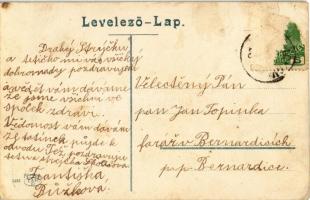 Levelező-Lap.
Drahý strýčku
a tetičko my vás všickni
dobromady pozdravujem
a vedět vám dáváme
že jsme všichni ve
spolek zdrávi.
Vědomost vám dávám
že tatínek půjde k
odvodu Též pozdravuje
Františka
Bužkova.
Velectěný Pán
pan Jan Topinka
farář v Bernardicích
p.p. Bernardice.